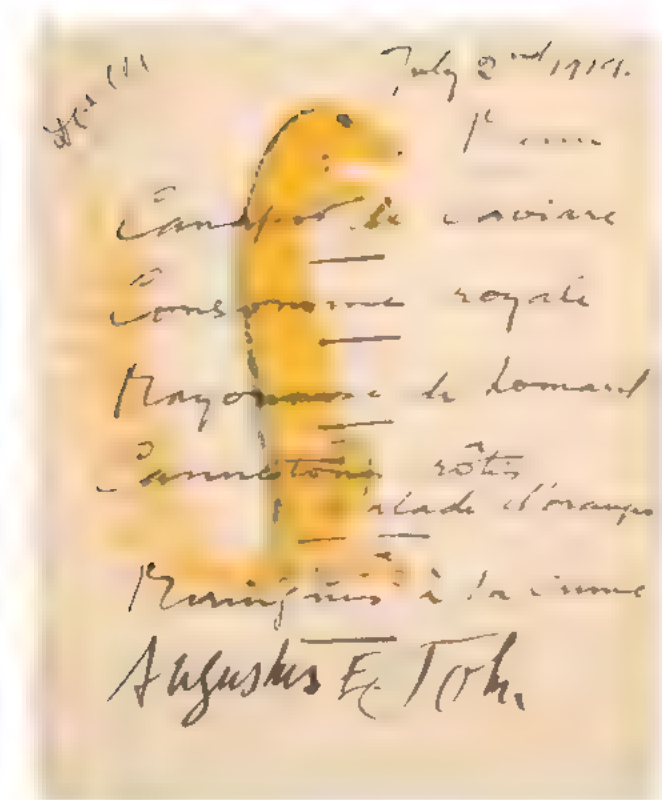 July 2nd 1914.
de caviare
Consomme royale
Mayonnaise de homard
Cannetons rôtis
salade d'orange
Meringues à la creme
Augustus E. John.